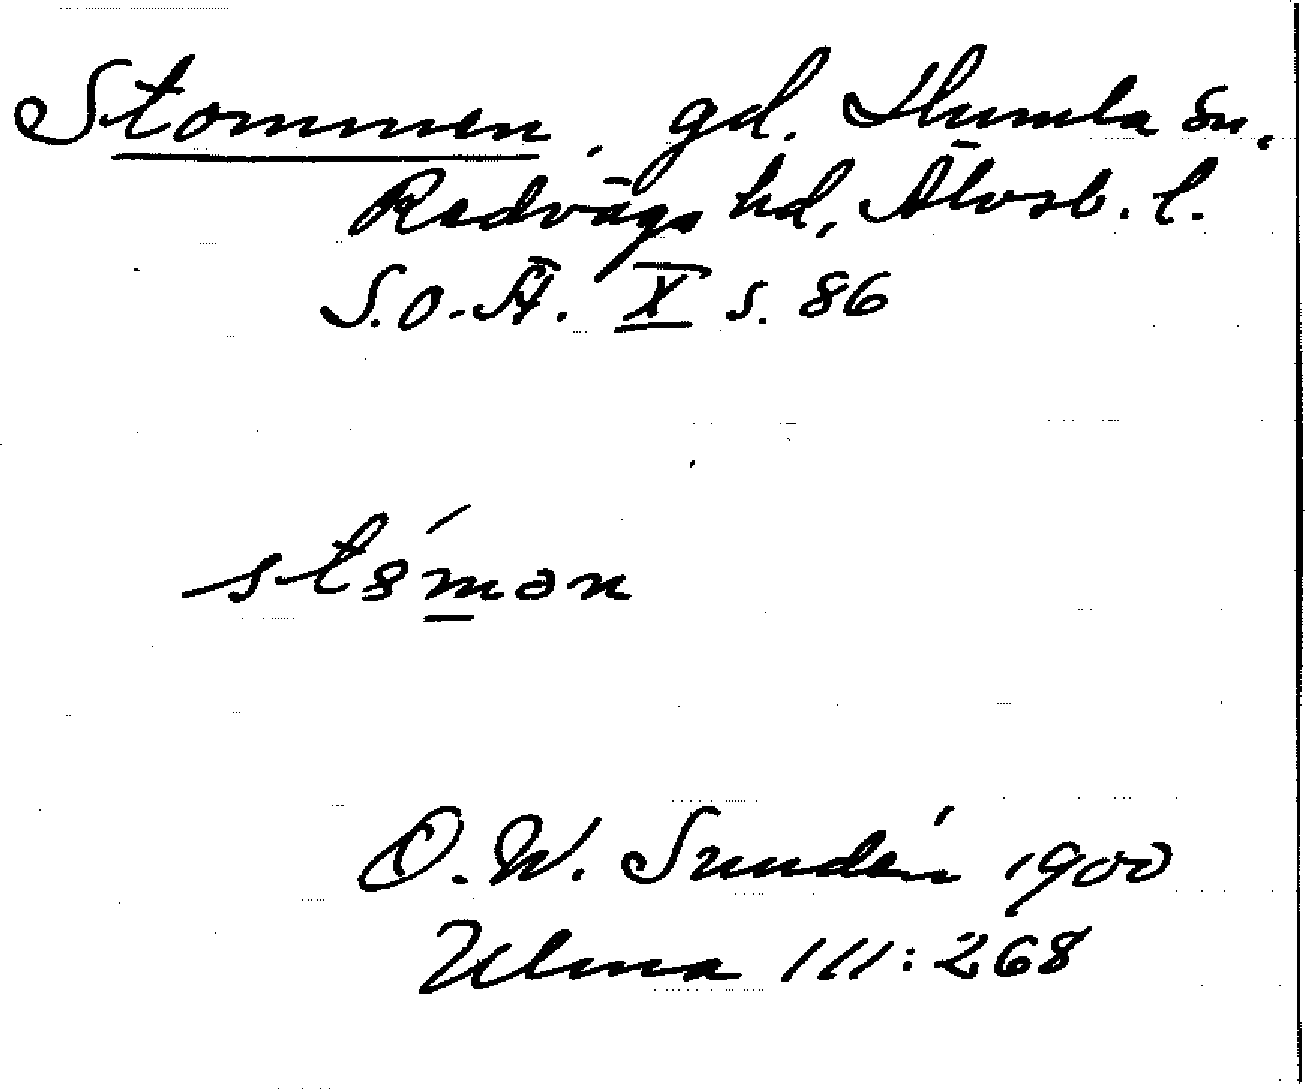 Stommen. gd. Humla sn.
Redvägs hd, Älvsb. l.
S.O.Ä. X s. 86
O.W. Sundén 1900
Ulma 111:268